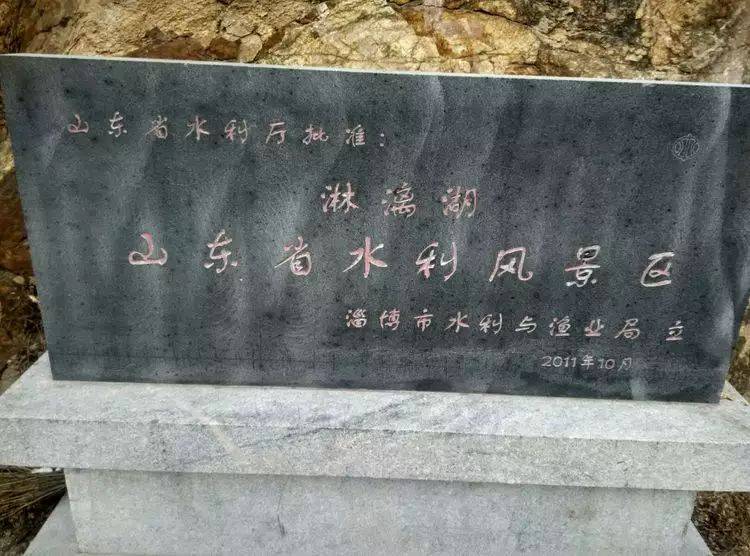 山东省水利厅批准：
淋漓湖
山东省水利风景区
淄博市水利与渔业局 立
2011年10月